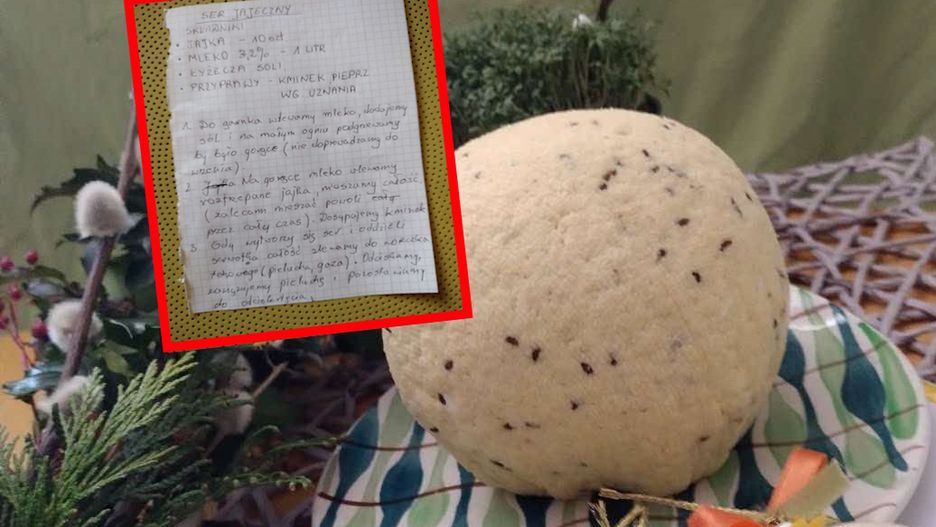 SER JAJECZNY
SKŁADNIKI
• JAJKA - 10 szt
• MLEKO 3,2% - 1 LITR
• ŁYŻECZA SOLI
• PRZYPRAWY - KMINEK, PIEPRZ
WG. UZNANIA
1. Do garnka wlewamy mleko, dodajemy
sól i na małym ogniu podgrzewamy
by było gorące (nie doprowadzamy do
wrzenia)
2. Na gorące mleko wlewamy
roztrzepane jajka, mieszamy całość
(zalecam mieszać powoli cały
przez cały czas). Dosypujemy kminek
3. Gdy wytworzy się ser i oddzieli
serwatka całość zlewamy do woreczka
(pielucha, gaza). Odciskamy,
zawiązujemy pieluchę i pozostawiamy
do odcieknięcia.